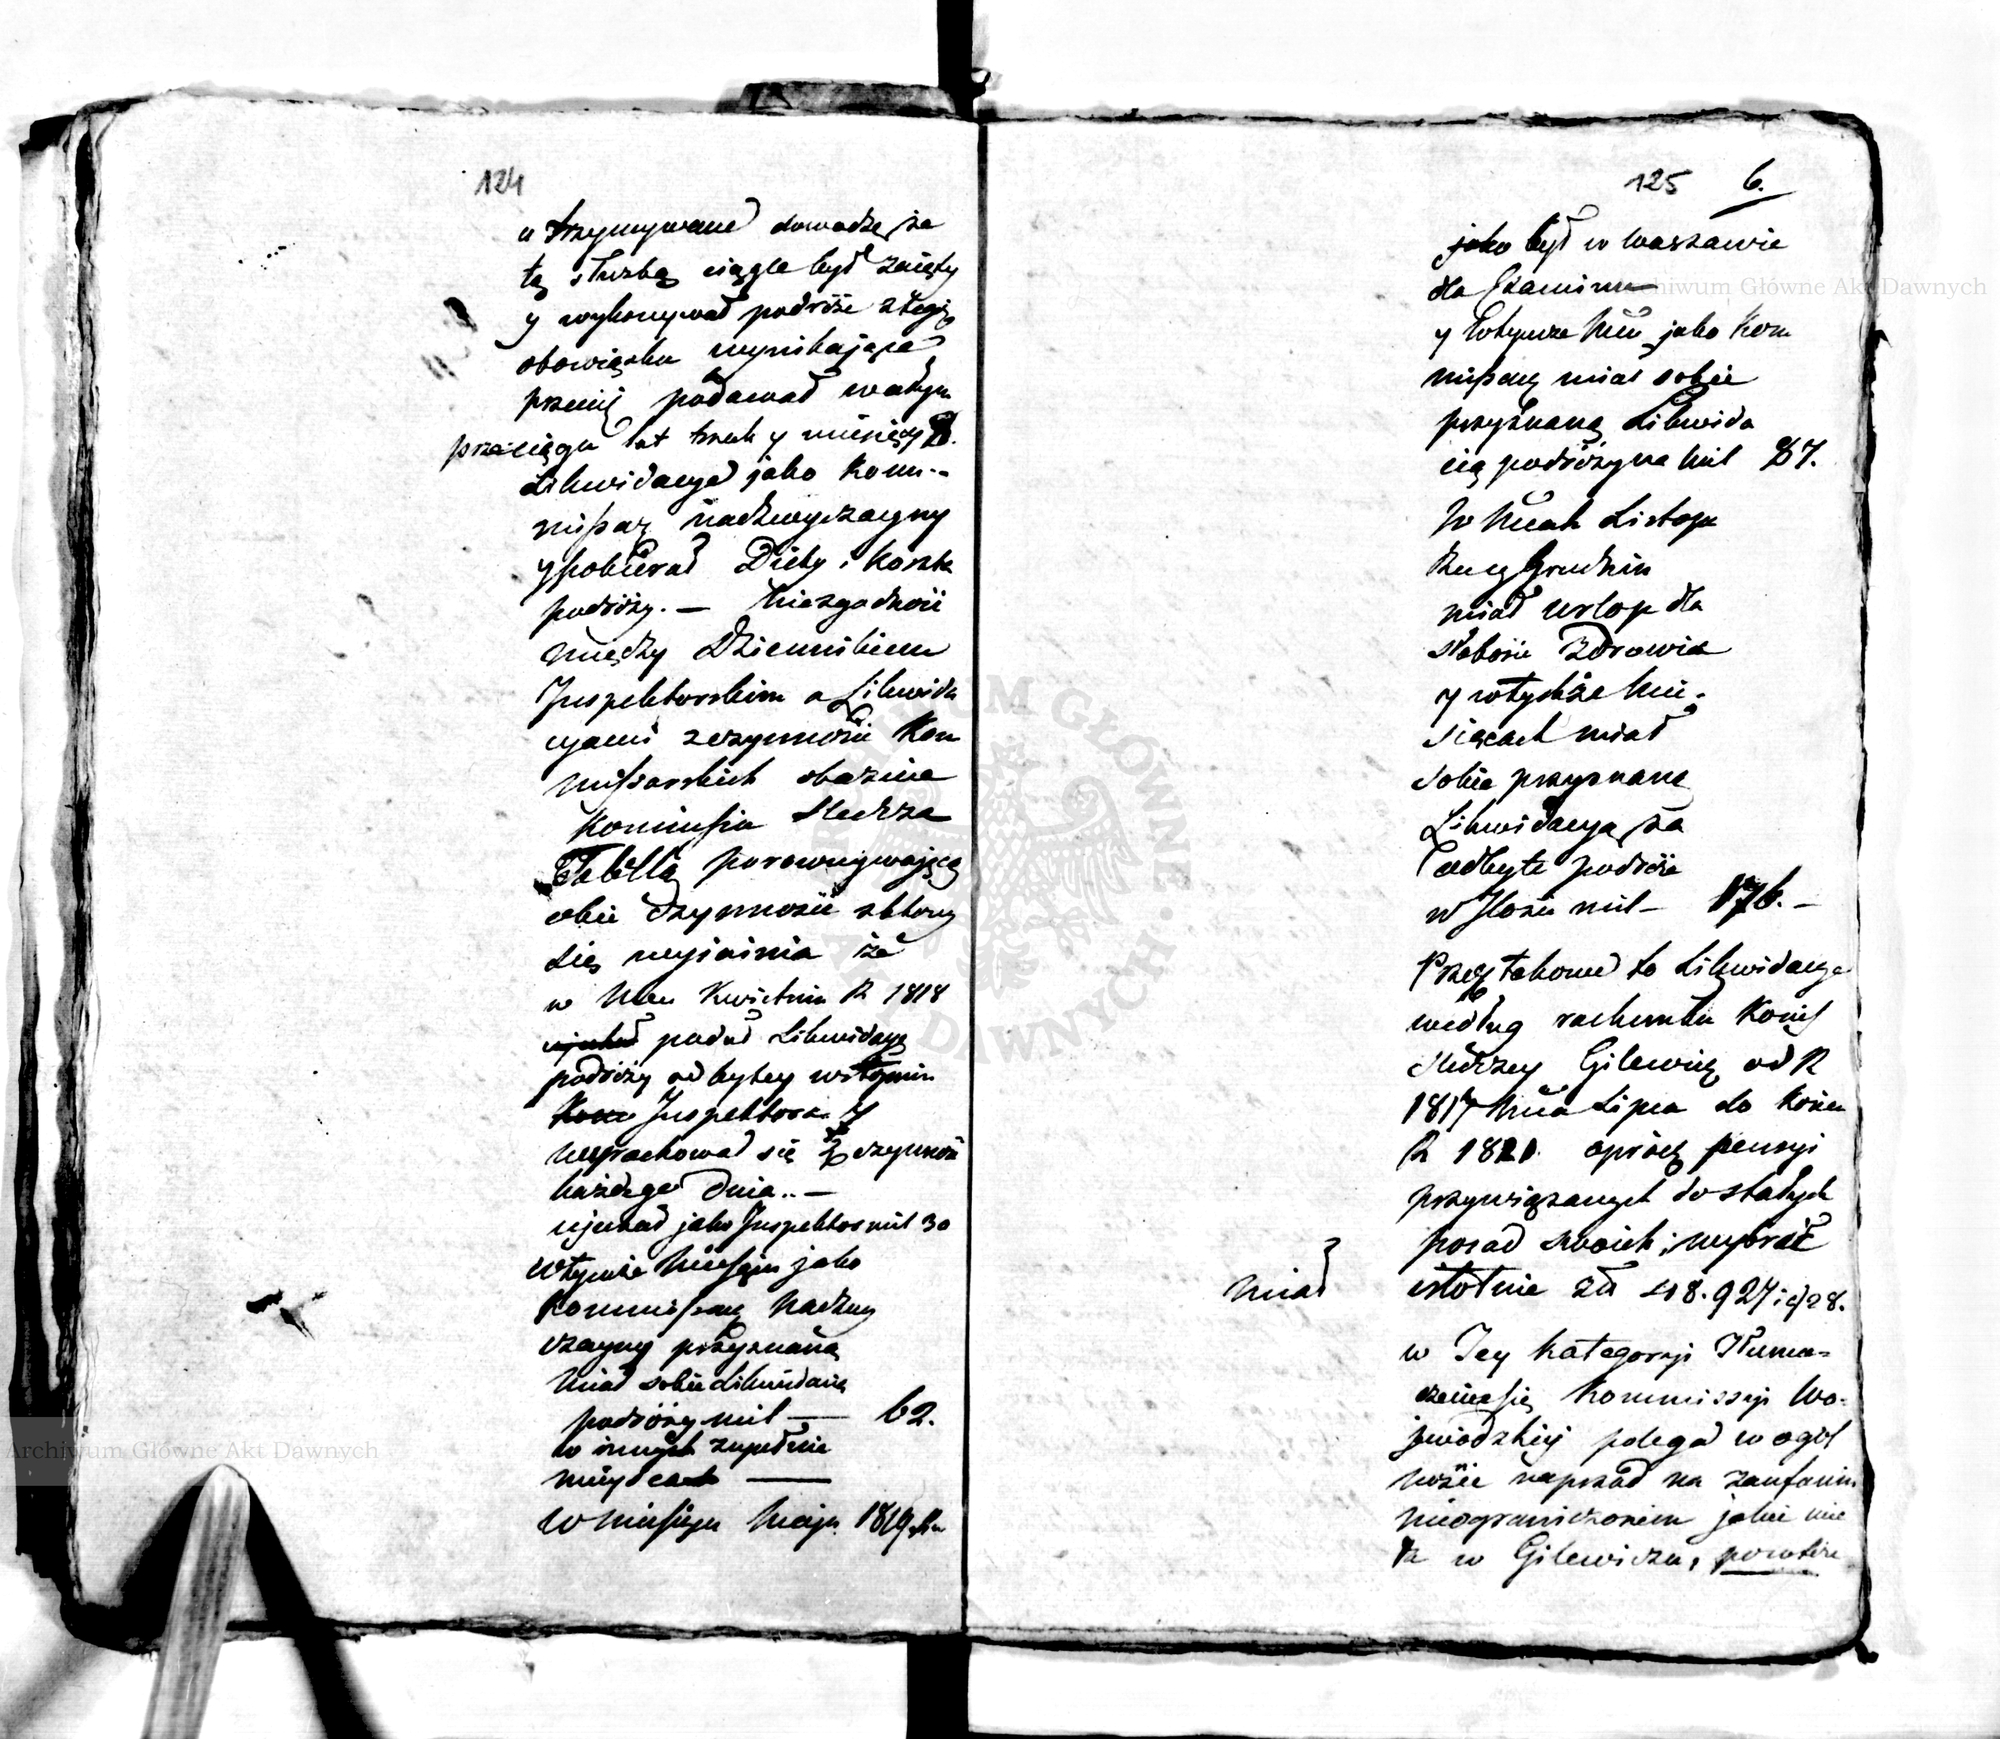 124
utrzymywane dowodzę, że
tą służbą ciągle był zajęty
y wykonywał podróże z tego
obowiązku wynikające,
przeciż podawał w całym
przeciągu lat trzech y miesięcy 8.
Likwidacye jako Kom-
missarz nadzwyczayny
y pobierał Diety i koszta
podróży. — Niezgodności
między Dziennikiem
Inspektorskim a Likwida
cyami z czynności Kom
missarskich okazuie
Kommissia Śledcza
Tabellą porównywającą
obie czynności z ktorey
się wyiaśnia że
w Mcu Kwietniu R 1818
podał Likwidacyę
podróży odbytey w stopniu
Inspektora y
wyrachował się z czynności
każdego dnia.. —
ujechał jako Inspektor mil 30
w tymże Miesiącu jako
Kommissarz Nadzwy
czayny przyznaną
miał sobie Likwidacię
podróży mil — 62.
w innych zupełnie
mieyscach —
W miesiącu Maju 1819
125 6.
jako był w Warszawie
dla Examinu
y w tymże Mcu jako Kom
missarz miał sobie
przyznaną Likwida
cią podróży na mil 87.
W Mcach Listopa
dzie y Grudniu
miał urlop dla
słabości Zdrowia
y w tychże Mie-
siącach miał
sobie przyznaną
Likwidacyą za
odbyte podróże
w Ilości mil — 176. —
Przez takowe to Likwidacye
według rachunku Komiss
Śledczey Gilewicz od R
1817 Mca Lipca do końca
R 1821 oprócz pensyi
przywiązanych do stałych
posad swoich; wybrać
miał
istotnie złł 48.927 i gr 28.
w Tey Kategoryi Tłuma-
czenie się Kommissyi Wo-
jwodzkiej polega w ogól
ności naprzód na zaufaniu
nieograniczonem jakie mia
ła w Gilewiczu, powtóre
Archiwum Główne Akt Dawnych
Archiwum Główne Akt Dawnych
ARCHIWUM GŁÓWNE AKT DAWNYCH